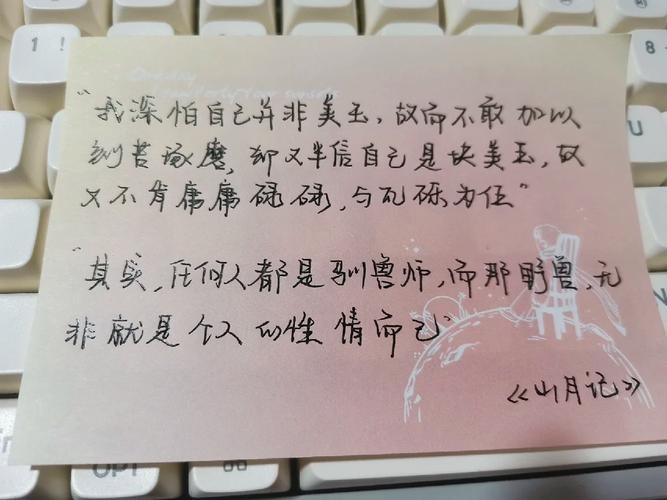 One day
I saw forty-four sunsets
"我深怕自己并非美玉，故而不敢加以
刻苦琢磨，却又半信自己是块美玉，故
又不肯庸庸碌碌，与瓦砾为伍"
"其实，任何人都是驯兽师，而那野兽，无
非就是个人的性情而已"
《山月记》
1 !
8
U
OPT